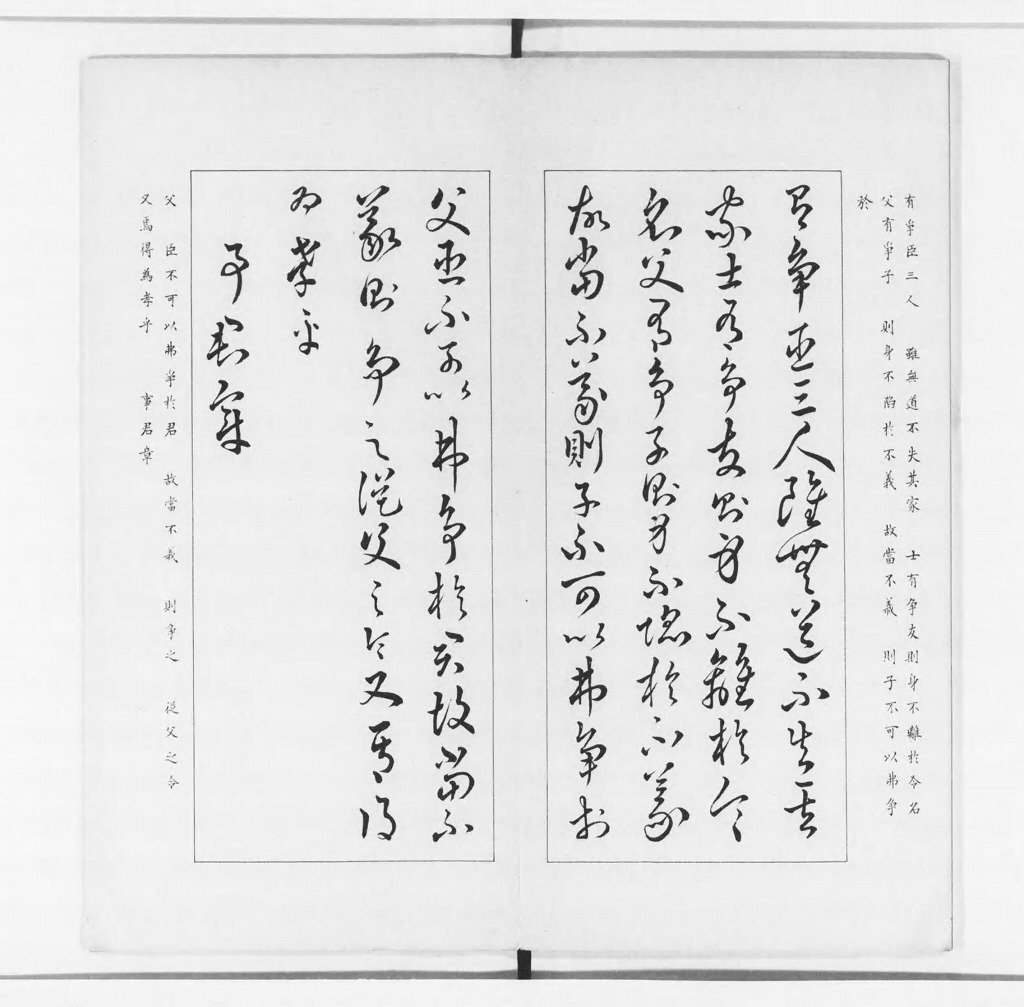 有爭臣三人 雖無道不失其家 士有爭友則身不離於令名
父有爭子 則身不陷於不義 故當不義 則子不可以弗爭
於
有爭臣三人雖無道不失其
家士有爭友則身不離於令
名父有爭子則身不陷於不義
故當不義則子不可以弗爭於
父臣不可以弗爭於君故當不
義則爭之從父之令又焉得
為孝乎
事君章
父 臣不可以弗爭於君 故當不義 則爭之 從父之令
又焉得為孝乎 事君章